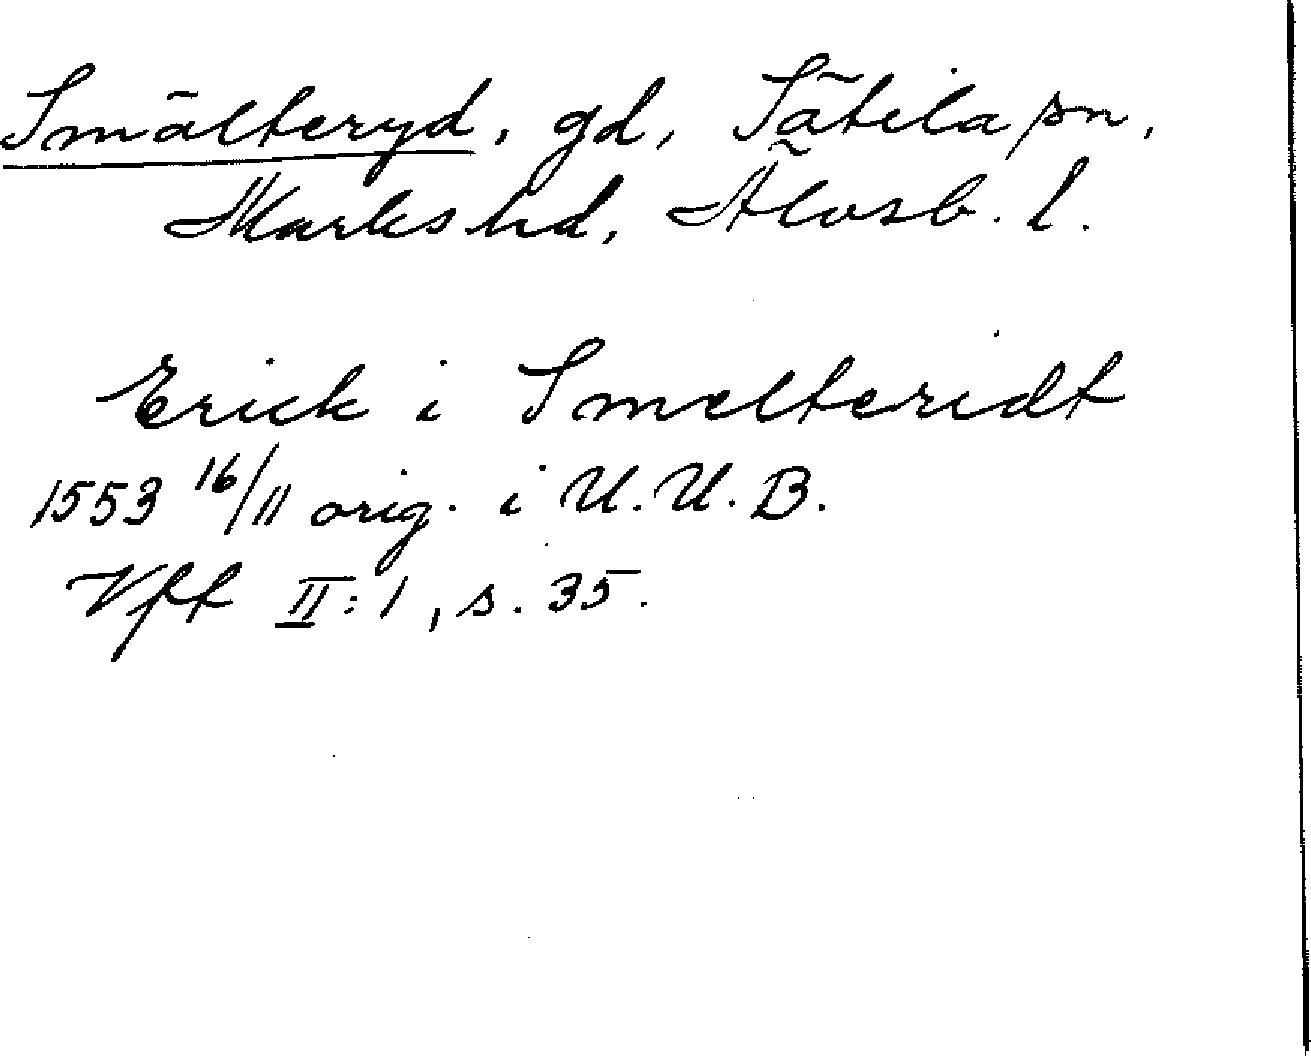 Smälteryd, gd, Sätila sn,
Marks hd, Älvsb. l.
Erick i Smelteridt
1553 16/11 orig. i U.U.B.
Vff II:1, s. 35.